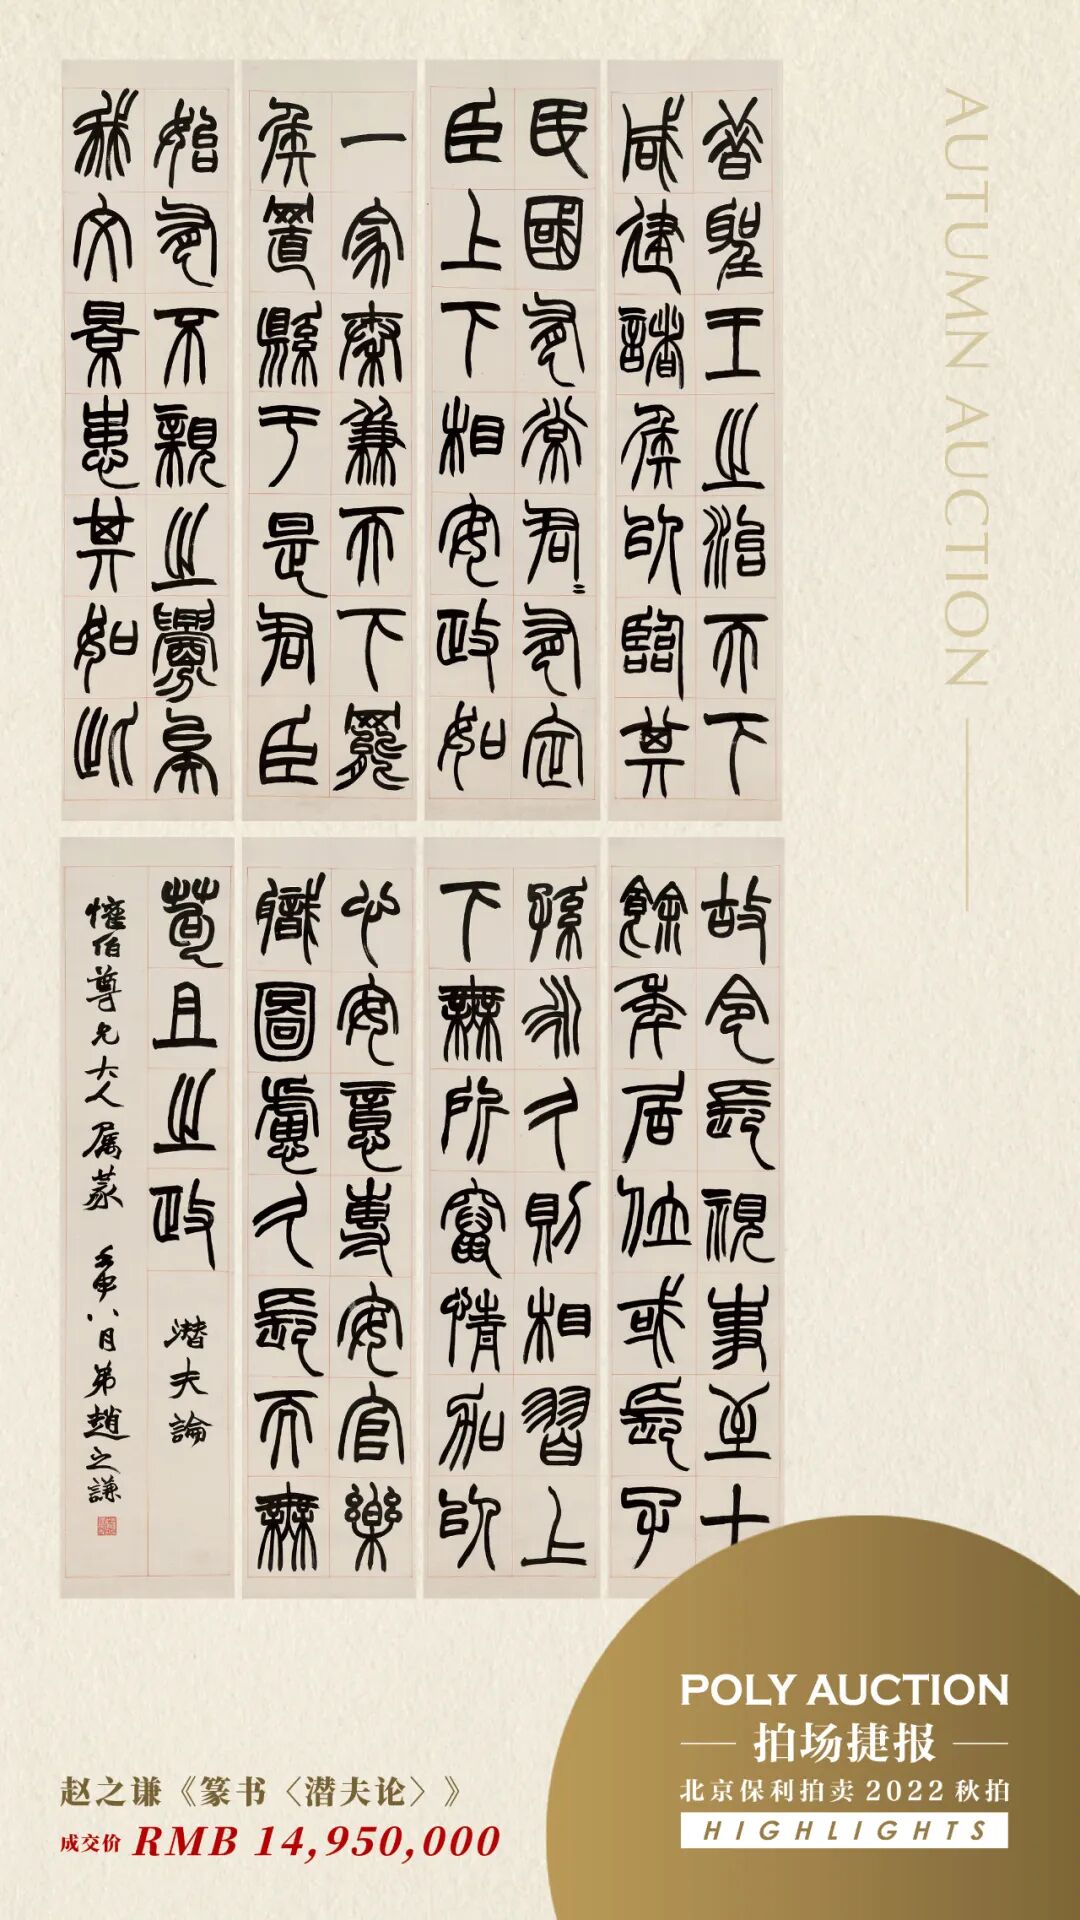 AUTUMN AUCTION
昔聖王之治天下
咸建諸侯以臨其
民國有常君=有定
臣上下相安政如
一家秦兼天下罷
侯置縣于是君臣
始有不親之釁矣
我文景患其如此
故令長視事至十
餘年居位或長子
孫永久則相習上
下無所竄情加以
心安意專安官樂
職圖慮久長而無
苟且之政 潜夫論
懽伯尊兄大人属篆 壬申八月弟趙之謙
赵之谦《篆书〈潜夫论〉》
成交价 RMB 14,950,000
POLY AUCTION
拍场捷报
北京保利拍卖 2022 秋拍
HIGHLIGHTS